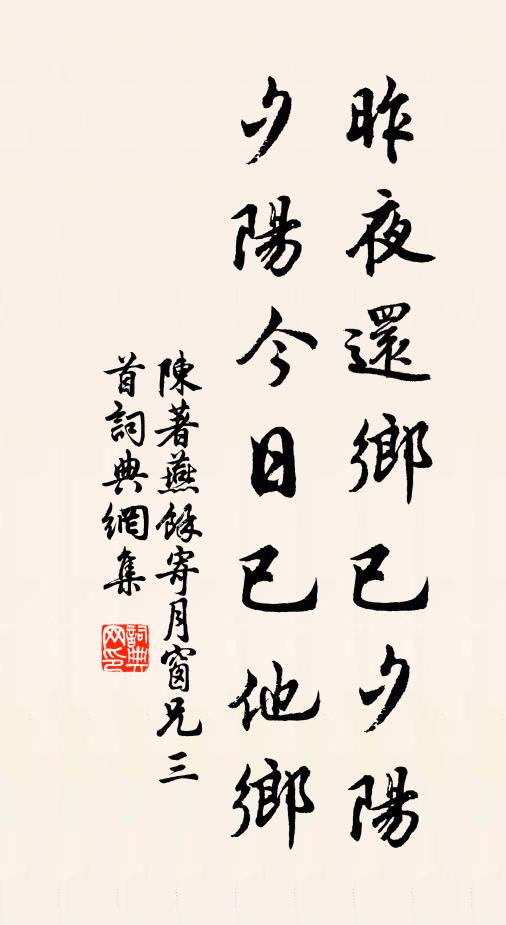 昨夜還鄉已夕陽
夕陽今日已他鄉
陳著燕餘寄月窗兄三
首詞典網集
詞典網印